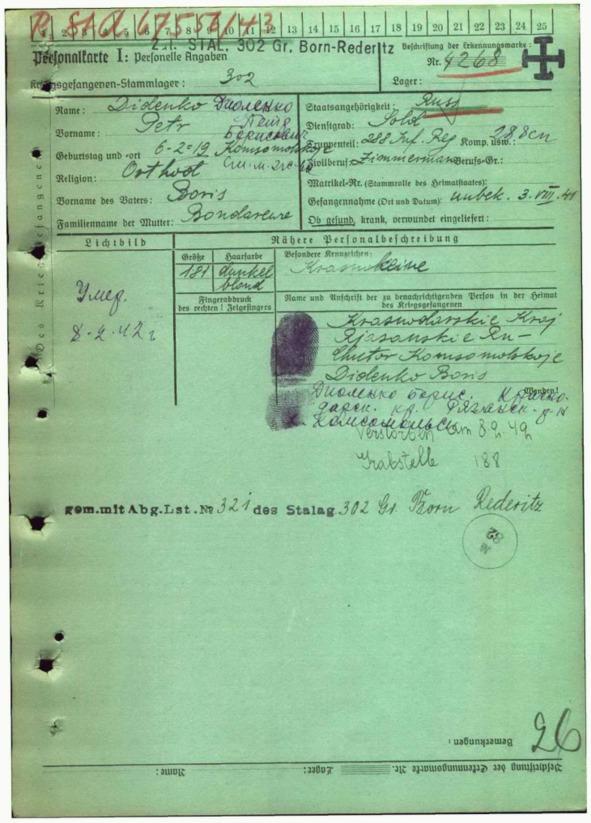 R StA 67551/43
1 2 3 4 5 6 7 8 9 10 11 12 13 14 15 16 17 18 19 20 21 22 23 24 25
STAL. 302 Gr. Born-Rederitz
Personalkarte I: Personelle Angaben
Beschriftung der Erkennungsmarke:
Nr. 4268
Kriegsgefangenen-Stammlager: 302
Lager:
Name: Didenko Диденко
Vorname: Petr Петр Борисович
Geburtstag und -ort 6-2-19 Komsomolskoje
Religion: Orthod
Vorname des Vaters: Boris
Familienname der Mutter:
Staatsangehörigkeit: Russ
Dienstgrad: Sold
Truppenteil: 288 Inf. Reg Komp. usw.:
Zivilberuf: Zimmermann Berufs-Gr.:
Matrikel-Nr. (Stammrolle des Heimatstaates):
Gefangennahme (Ort und Datum): unbek. 3. VIII. 41
Ob gesund, krank, verwundet eingeliefert:
Des Kriegsgefangenen
Lichtbild
Nähere Personalbeschreibung
Größe
Haarfarbe
Besondere Kennzeichen:
181
dunkel
blond
keine
Fingerabdruck
des rechten! Zeigefingers
Name und Anschrift der zu benachrichtigenden Person in der Heimat
des Kriegsgefangenen
Умер.
8-2-42 г
Krasnodarskie Kraj
Rjasanskie Ra-
Chutor Komsomolskoje
Didenko Boris
Диденко Борис.
дарск. кр. Рязанск.
х. Комсомольск
Verstorben am 8.2.42
Grabstelle 188
gem.mit Abg.Lst.№ 321 des Stalag 302 Gr. Born Rederitz
Bemerkungen:
26
Beschriftung der Erkennungsmarke Nr.
Lager:
Name: